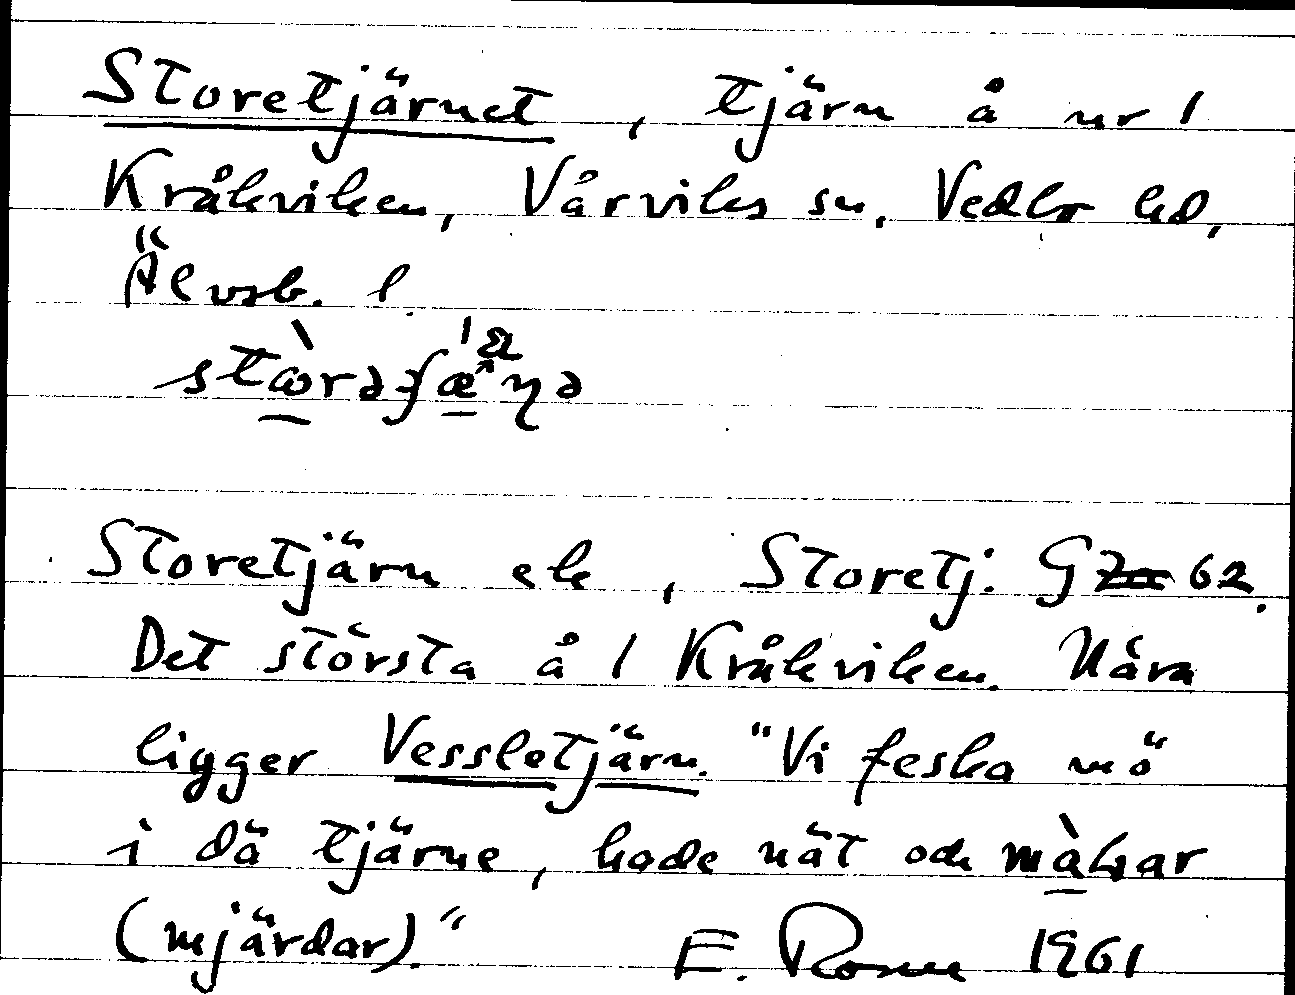 Storetjärnet, tjärn å nr 1
Kråkviken, Vårviks sn. Vedbo hd,
Älvsb. l.

Storetjärn ek, Storetj. G 62.
Det största å 1 Kråkviken. Nära
ligger Vessletjärn. "Vi feska mö
i dä tjärne, hade nät och
(mjärdar)." E. Rosen 1961